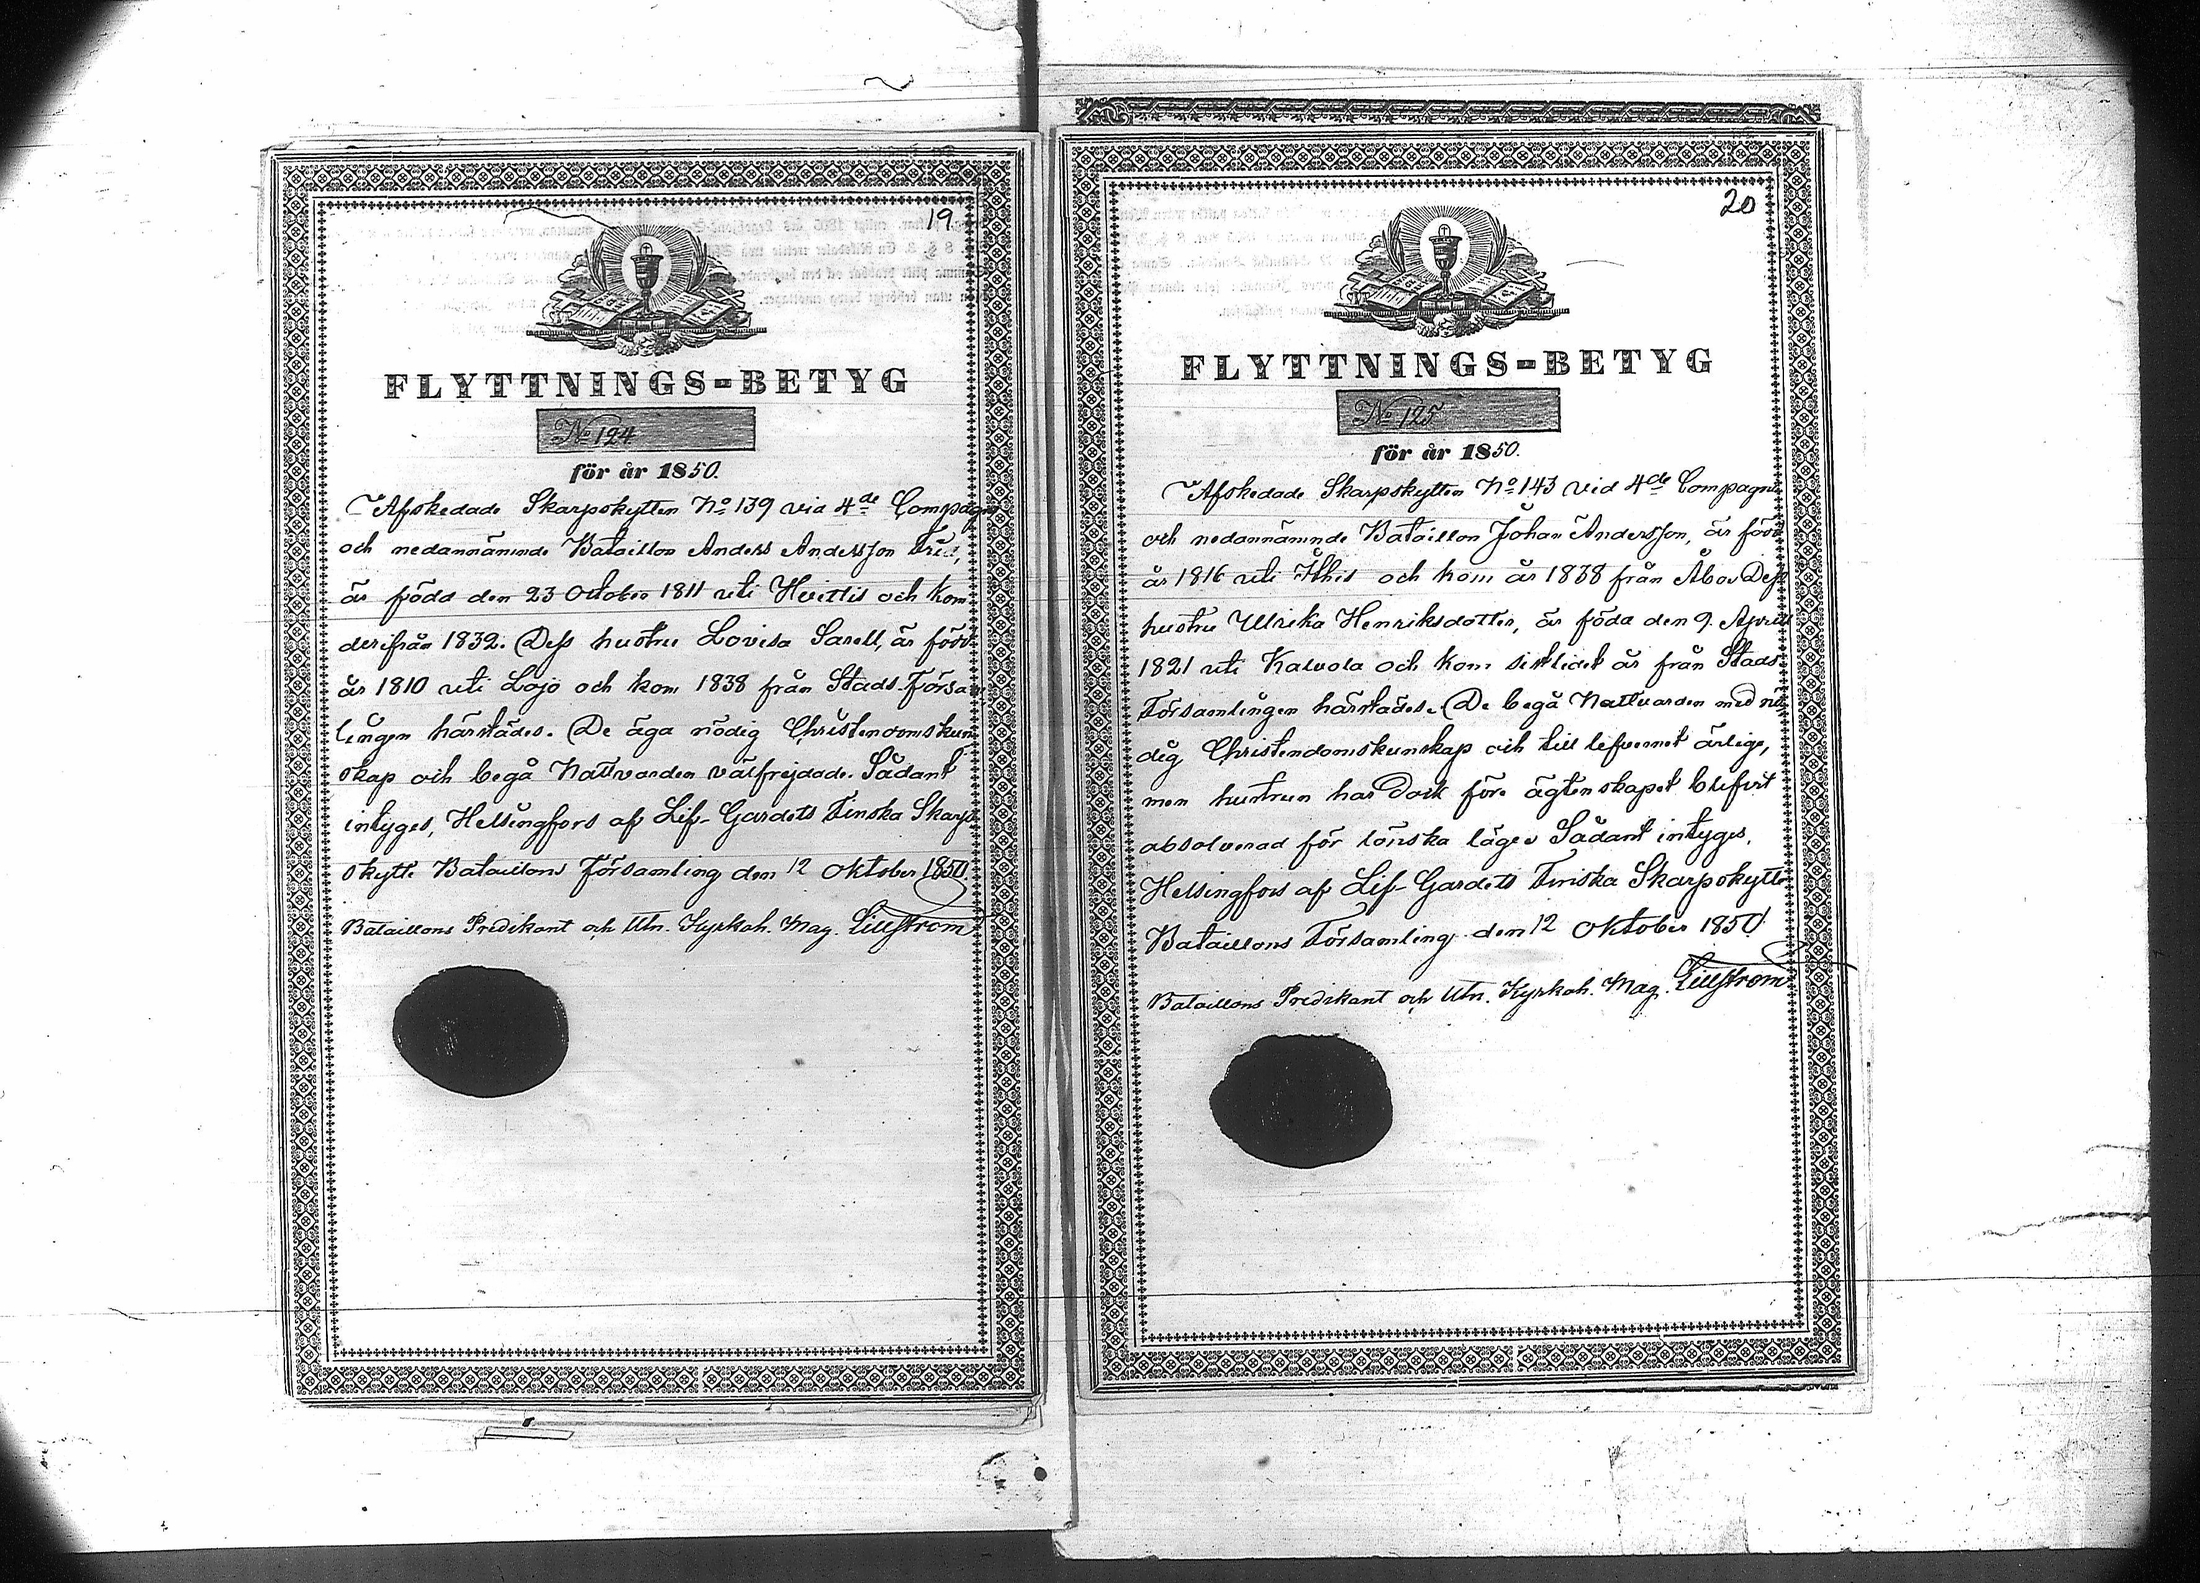 19.
FLYTTNINGS-BETYG
No 124
för år 1850.
Afskedade Skarpskytten No 139 vid 4de Compagni
och nedannämnde Bataillon Anders Andersson
är född den 23 October 1811 uti Hvittis och kom
derifrån 1832. Dess hustru Lovisa Sarell, är född
år 1810 uti Lojo och kom 1838 från Stads-Försam
lingen härstädes. De äga nödig Christendomskun
skap och begå Nattvarden välfrejdade. Sådant
intyges, Helsingfors af Lif-Gardets Finska Skarp
skytte Bataillons Församling den 12 Oktober 1850.
Bataillons Predikant och Utn. Kyrkoh. Mag. Lillström
20
FLYTTNINGS-BETYG
No 125
för år 1850.
Afskedade Skarpskytten No 143 vid 4de Compagni
och nedannämnde Bataillon Johan Andersson, är född
år 1816 uti och kom år 1838 från Åbo. Dess
hustru Ulrika Henriksdotter, är föda den 9. April
1821 uti Kalvola och kom sistlidet år från Stads
Församlingen härstädes. De begå Nattvarden med nö
dig Christendomskunskap och till lifvernet ärlige,
men hustrun har dock före ägtenskapet blifvit
absolverad för lönska läge. Sådant intyges,
Helsingfors af Lif-Gardets Finska Skarpskytte
Bataillons Församling den 12 Oktober 1850
Bataillons Predikant och Utn. Kyrkoh. Mag. Lillström